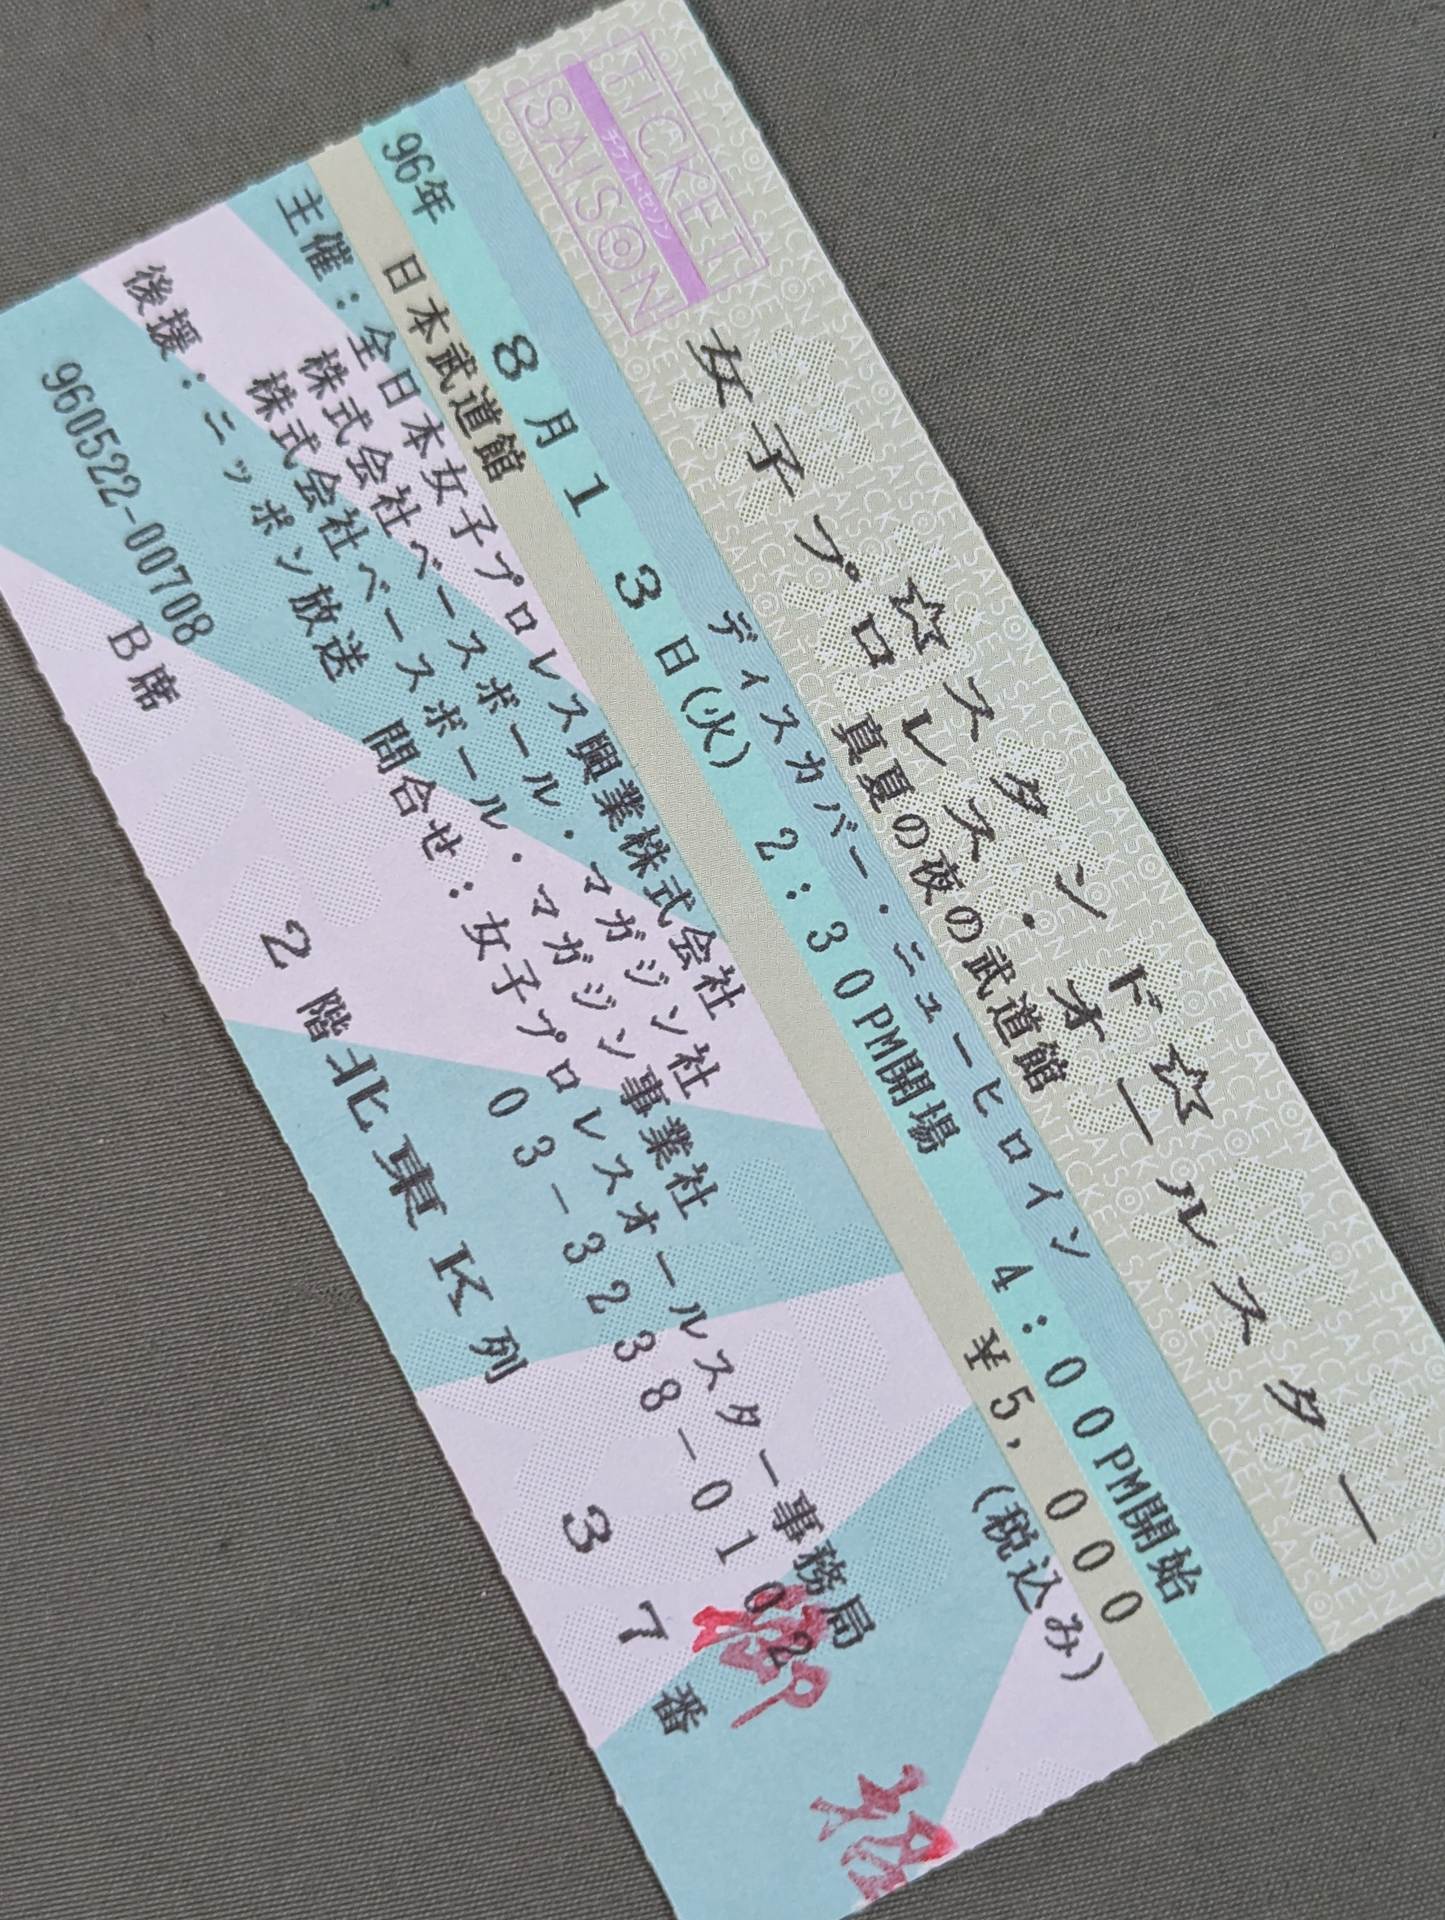 TICKET
チケット・セゾン
SAISON
☆スタンド☆
女子プロレス・オールスター
真夏の夜の武道館
ディスカバー・ニューヒロイン
96年 8月13日(火) 2:30PM開場 4:00PM開始
日本武道館 ¥5,000
(税込み)
主催:全日本女子プロレス興業株式会社
株式会社ベースボール・マガジン社
株式会社ベースボール・マガジン事業社
後援:ニッポン放送 問合せ:女子プロレスオールスター事務局
03-3238-0102
960522-00708
B席
2階北東K列 37番
御
招